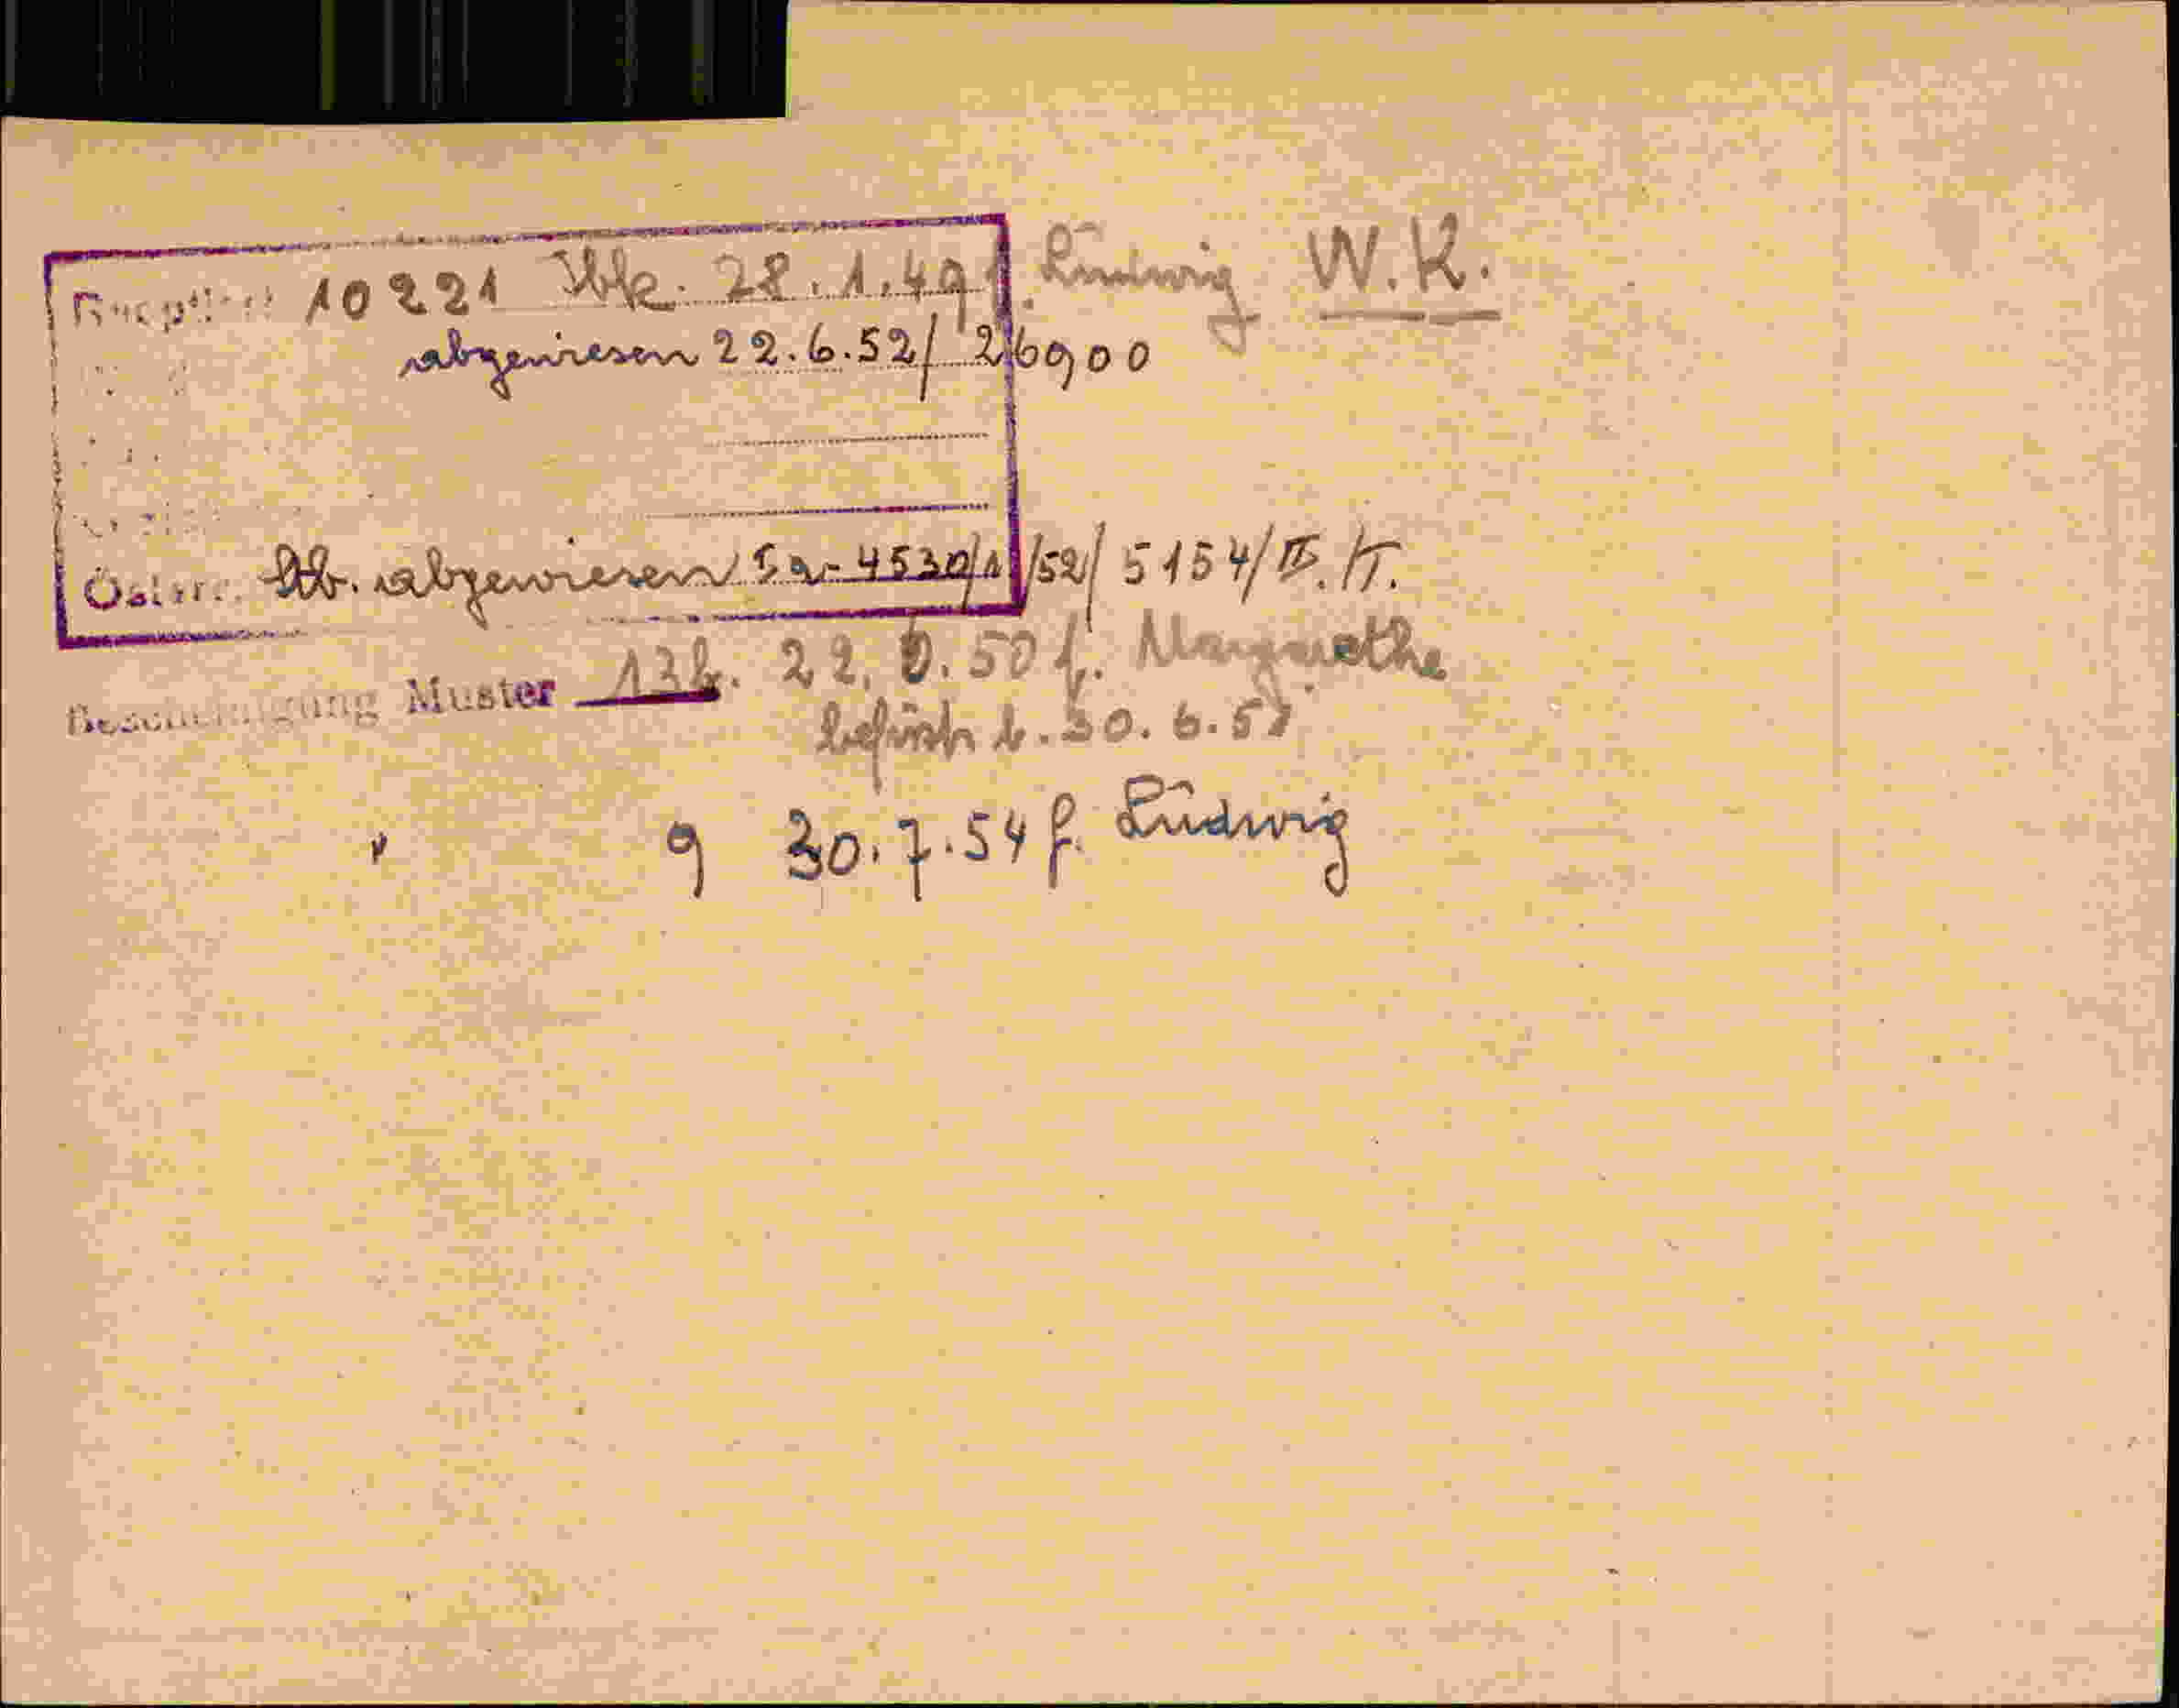 10221 Stk. 28.1.49 f. Ludwig W.K.
abgewiesen 22.6.52/ 26900
Österr. abgewiesen Sa- 4530/1/52/ 5154/II. K.
Bescheinigung Muster 13b. 22. 50 f. Margarethe
befrist. b. 30. 6. 51
" 9 30.7.54 f. Ludwig